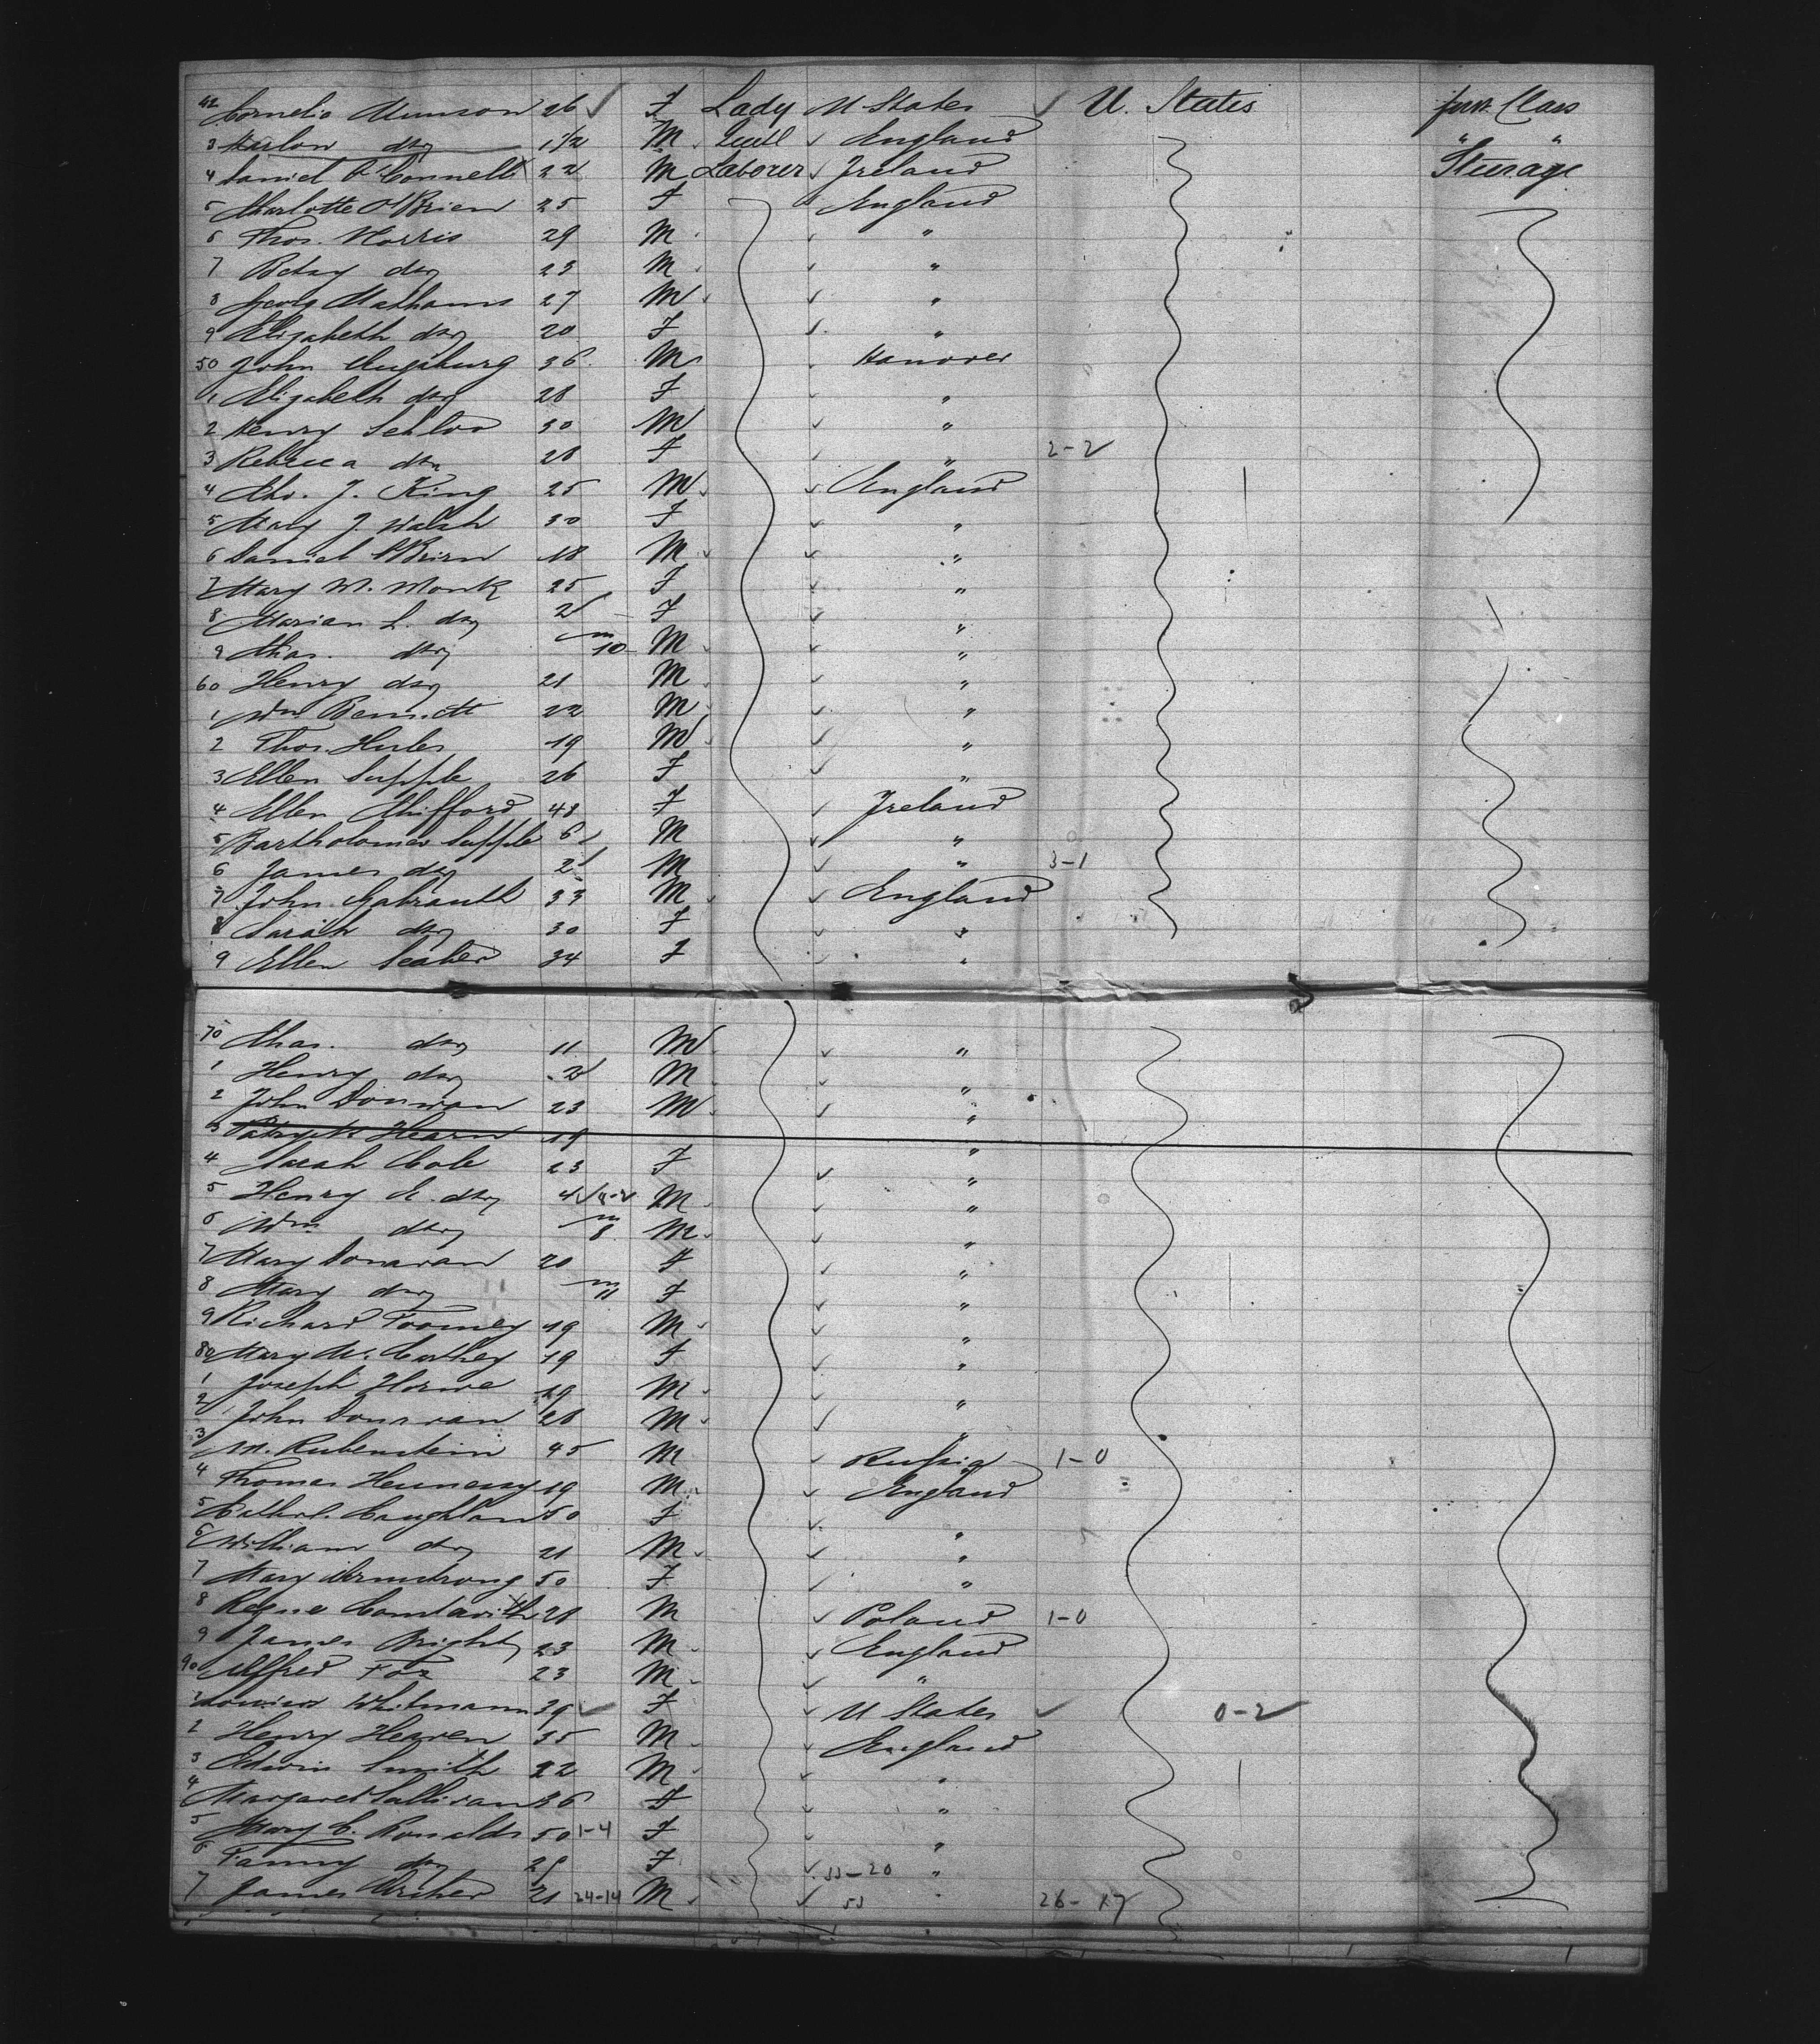 42 Cornelia Munson 26 ✓ F Lady U States ✓ U. States First Class
3 Harlow do 1 1/2 M England " "
4 Daniel O'Connell 22 M Laborer Ireland Steerage
5 Charlotte O'Brien 25 F England
6 Thos. Morris 29 M "
7 Betsy do 23 M "
8 Georg Mathams 27 M "
9 Elizabeth do 20 F "
50 John Augsburg 36 M Hanover
1 Elizabeth do 28 F "
2 Henry Schloo 30 M "
3 Rebecca do 28 F " 2-2
4 Chs. J. King 25 M England
5 Mary J. Walsh 30 F "
6 Daniel O'Brien 18 M "
7 Mary W. Monk 25 F "
8 Marian L. do 2 F "
9 Chas. do m 10 M "
60 Henry do 21 M "
1 Wm Bennett 22 M "
2 Thos. 19 M "
3 Ellen Supple 26 F "
4 Ellen Chifford 48 F Ireland
5 Bartholomew Supple 6 M "
6 James do 2 M " 3-1
7 John Gabrauth 33 M England
8 Sarah do 30 F "
9 Ellen 34 F "
70 Chas. do 11 M "
1 Henry do 2 M "
2 John Donovan 23 M "
3 Patrick Hearn 19 "
4 Sarah Cole 23 F "
5 Henry C. do 4 4-2 M "
6 Wm do m 8 M "
7 Mary Donavan 20 F "
8 Mary do m 11 F "
9 Richard Toomey 19 M "
80 Mary Mc. Carthey 19 F "
1 Joseph Horne 19 M "
2 John Donavan 28 M "
3 M. Rubenstein 45 M Russia 1-0
4 Thomas Hennessy 19 M England
5 Cathr. Coughlan 50 F "
6 William do 21 M "
7 Mary Armstrong 50 F "
8 28 M Poland 1-0
9 James Bright 23 M England
90 Alfred Fox 23 M "
1 Louisa Whitmann 39 ✓ F U States ✓ 0-2
2 Henry Heaven 35 M England
3 Edwin Smith 22 M "
4 Margaret Sullivan 36 F "
5 Mary C. Ronalds 50 1-4 F "
6 Fanny do 25 F 33-20 "
7 James Archer 21 24-14 M 53 " 26-17